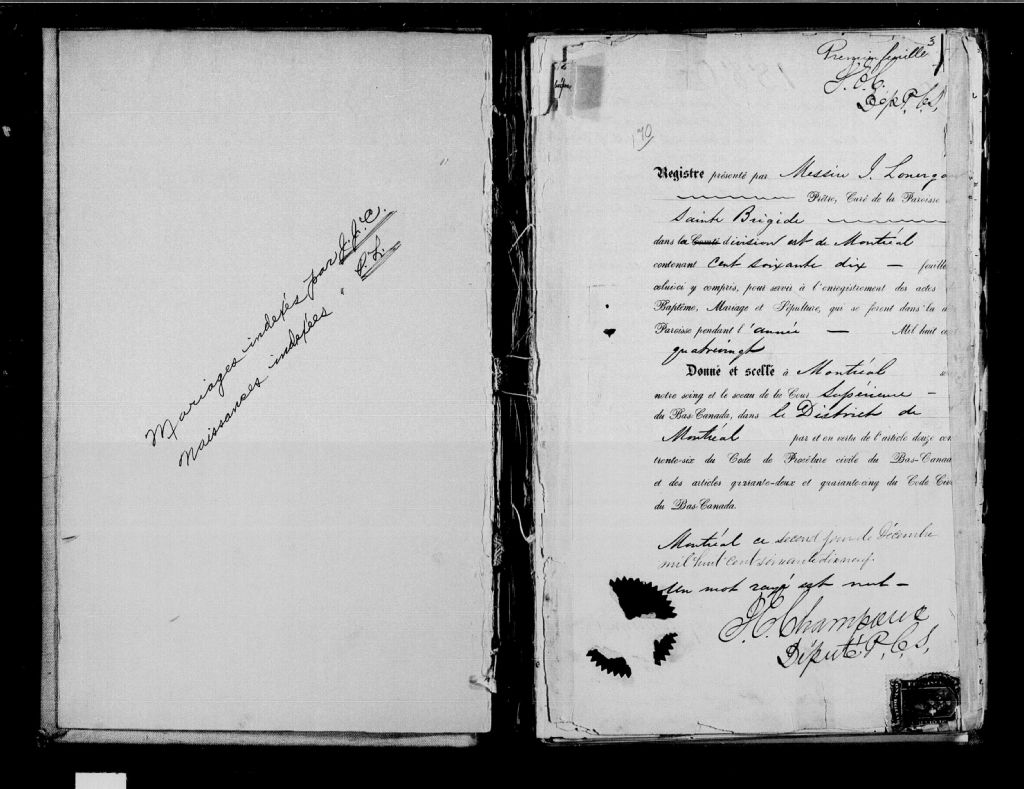 Mariages indexés par J.J.C.
Naissances indexées " C.L.
3
feuille
Dép. P.C.S.
170
Registre présenté par Messire J. Lonerga
Prêtre, Curé de la Paroisse
Sainte Brigide
dans la Comté division est de Montréal
contenant Cent soixante dix — feuille
celui-ci y compris, pour servir à l'enregistrement des actes
Baptême, Mariage et Sépulture, qui se feront dans la
Paroisse pendant l'année — Mil huit ce
quatrevingt
Donné et scellé à Montréal
notre seing et le sceau de la Cour Supérieure —
du Bas-Canada, dans le District de
Montréal par et en vertu de l'article douze cen
trente-six du Code de Procédure civile du Bas-Canada
et des articles quarante-deux et quarante-cinq du Code Civi
du Bas-Canada.
Montréal ce second jour de Décembre
mil huit cent soixante dixneuf.
Un mot rayé est nul —
Député P.C.S.